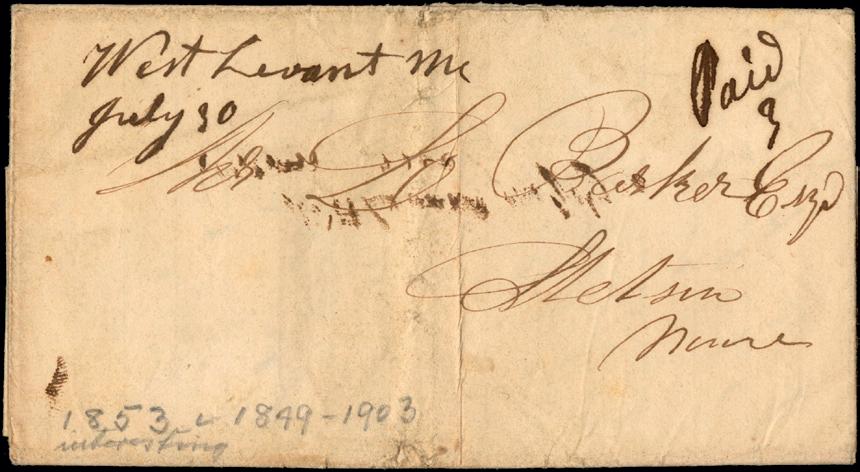 West Levant Me
July 30
Paid
3
Barker Esqr
Stetson
Maine
1853 1849-1903
interesting